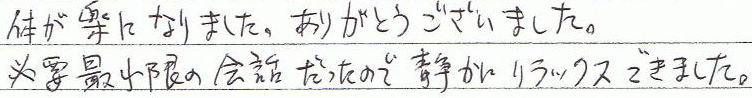 体が楽になりました。ありがとうございました。
必要最小限の会話だったので静かにリラックスできました。